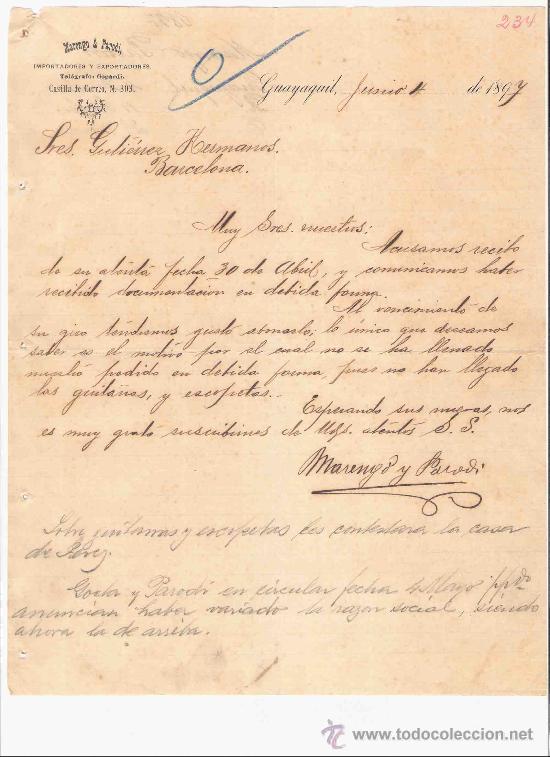 234
Marengo & Parodi,
IMPORTADORES Y EXPORTADORES.
Telégrafo:
Casilla de Correo, N. 303.
Guayaquil, Junio 4 de 1897
Sres. Gutiérrez Hermanos.
Barcelona.
Muy Sres. nuestros:
Acusamos recibo
de su atenta fecha 30 de Abril, y comunicamos haber
recibido documentacion en debida forma.
Al vencimiento de
su giro tendremos gusto abonarlo; lo único que deseamos
saber es el motivo por el cual no se ha llenado
nuestro pedido en debida forma, pues no han llegado
las guitarras, y escopetas.
Esperando sus nuevas, nos
es muy grato suscribirnos de Uds. atentos S. S.
Marengo y Parodi
Sobre guitarras y escopetas les contestara la casa
de Pérez.
y Parodi en circular fecha 4 Mayo ppdo
anuncian haber variado la razon social, siendo
ahora la de arriba.
www.todocoleccion.net